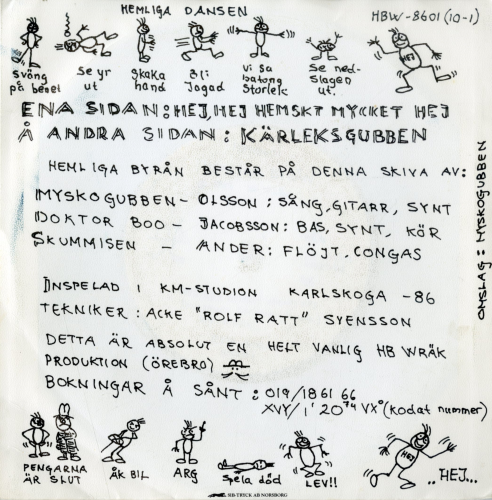 HEMLIGA DANSEN
HBW-8601 (10-1)
HEJ
Sväng på benet
Se yr ut
Skaka hand
Bli Jagad
Vi sa batong Storlek
Se ned-slagen ut.
ENA SIDAN: HEJ, HEJ HEMSKT MYCKET HEJ
Å ANDRA SIDAN: KÄRLEKSGUBBEN
HEMLIGA BYRÅN BESTÅR PÅ DENNA SKIVA AV:
MYSKOGUBBEN - OLSSON: SÅNG, GITARR, SYNT
DOKTOR BOO - JACOBSSON: BAS, SYNT, KÖR
SKUMMISEN - ANDER: FLÖJT, CONGAS
INSPELAD I KM-STUDION KARLSKOGA -86
TEKNIKER: ACKE "ROLF RATT" SVENSSON
DETTA ÄR ABSOLUT EN HELT VANLIG HB WRÄK
PRODUKTION (ÖREBRO)
BOKNINGAR Å SÅNT: 019/18 61 66
(kodat nummer)
OMSLAG: MYSKOGUBBEN
PENGARNA ÄR SLUT
ÅK BIL
ARG
Spela död
LEV!!
HEJ
..HEJ...
SIB-TRYCK AB NORSBORG